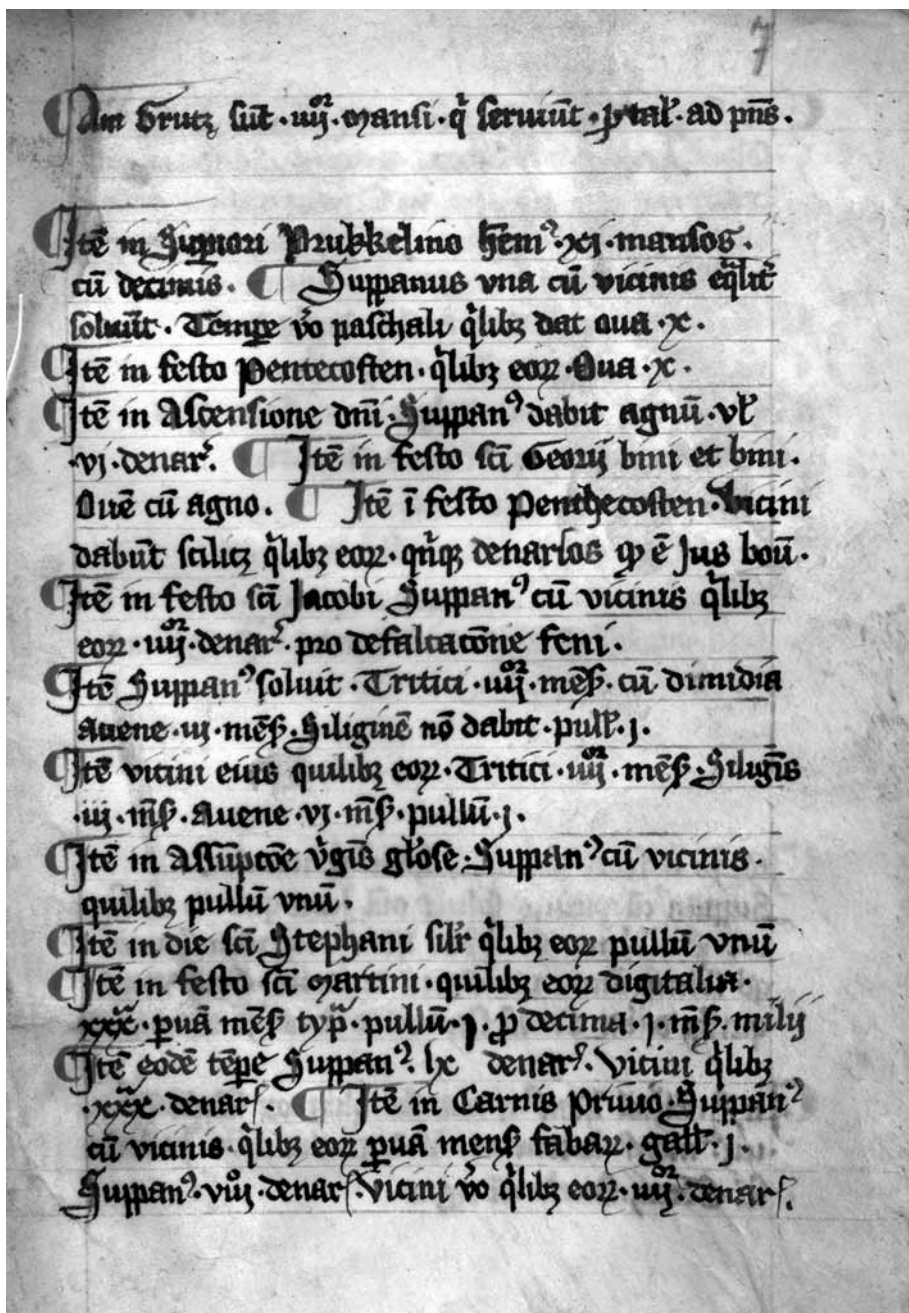 7
¶ Am Grutz sūt · iiijor · mansi · q̇ seruiūt · p tal̄ · ad pn̄s ·
¶ Itē in Supiori Prukkelino hēmꝰ · xj · mansos ·
cū decimis · ¶ Suppanus vna cū vicinis eq̄lit̄
soluūt · Tempe v̊o paschali q̇libꝫ dat oua · x ·
¶ Itē in festo Pentecosten · q̇libꝫ eoꝝ · Oua · x ·
¶ Itē in Ascensione dn̄i · Suppanꝰ dabit agnū · vl̄
· vj · denar̄ · ¶ Itē in festo sc̄i Georij bini et bini ·
Ouē cū agno · ¶ Itē ī festo Penthecosten · Vicini
dabūt scilicꝫ q̇libꝫ eoꝝ · qn̄qꝫ denarios ꝙ ē Jus boū ·
¶ Itē in festo sc̄i Jacobi Suppanꝰ cū vicinis q̇libꝫ
eoꝝ · iiijor · denar̄ · pro defalcatōne feni ·
¶ Itē Suppanꝰ soluit · Tritici · iiijor · mēs̄ · cū dimidia
Auene · vj · mēs̄ · Siliginē nō dabit · pull̄ · j ·
¶ Itē vicini eius quilibꝫ eoꝝ · Tritici · iiijor · mēs̄ · Siligīs
· iij · m̄s̄ · Auene · vj · m̄s̄ · pullū · j ·
¶ Itē in Assūpcōe v̇gīs gl̓ose · Suppanꝰ cū vicinis ·
quilibꝫ pullū vnū ·
¶ Itē in die sc̄i Stephani sil̓r q̇libꝫ eoꝝ pullū vnū
¶ Itē in festo sc̄i Martini · quilibꝫ eoꝝ digitalia ·
xxx · ꝑuā mēs̄ · pullū · j · ꝓ decima · j · m̄s̄ · milij
¶ Itē eodē tēpe Suppanꝰ · lx denar̄ · Vicini q̇libꝫ
· xxx · denar̄ · ¶ Itē in Carnis Priuio · Suppanꝰ
cū vicinis · q̇libꝫ eoꝝ ꝑuā mens̄ fabaꝝ · gall̄ · j ·
Suppanꝰ · viij · denar̄ · Vicini v̊o q̇libꝫ eoꝝ · iiijor · denar̄ ·